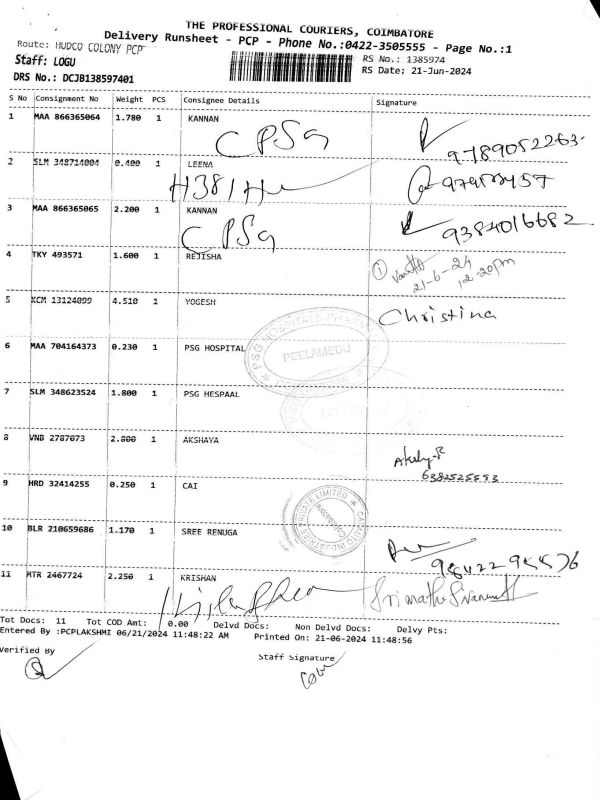 THE PROFESSIONAL COURIERS, COIMBATORE
Delivery Runsheet - PCP - Phone No.:0422-3505555 - Page No.:1
Route: HUDCO COLONY PCP
RS No.: 1385974
Staff: LOGU
RS Date: 21-Jun-2024
DRS No.: DCJB138597401
S No Consignment No Weight PCS Consignee Details Signature
1 MAA 866365064 1.780 1 KANNAN
CPSG 9789052263
2 SLM 348714004 0.400 1 LEENA
H381
3 MAA 866365065 2.200 1 KANNAN
CPSG 9384016682
4 TKY 493571 1.600 1 REJISHA
1 21-6-24
12.20pm
5 KCM 13124099 4.510 1 YOGESH
Christina
6 MAA 704164373 0.230 1 PSG HOSPITAL
PSG HOSPITALS
PEELAMEDU
7 SLM 348623524 1.800 1 PSG HESPAAL
PEELAMEDU
8 VNB 2787073 2.800 1 AKSHAYA
6382525593
9 HRD 32414255 0.250 1 CAI
PRIVATE LIMITED
10 BLR 210659686 1.170 1 SREE RENUGA
11 MTR 2467724 2.250 1 KRISHAN
Tot Docs: 11 Tot COD Amt: 0.00 Delvd Docs: Non Delvd Docs: Delvy Pts:
Entered By :PCPLAKSHMI 06/21/2024 11:48:22 AM Printed On: 21-06-2024 11:48:56
Verified By
Staff Signature